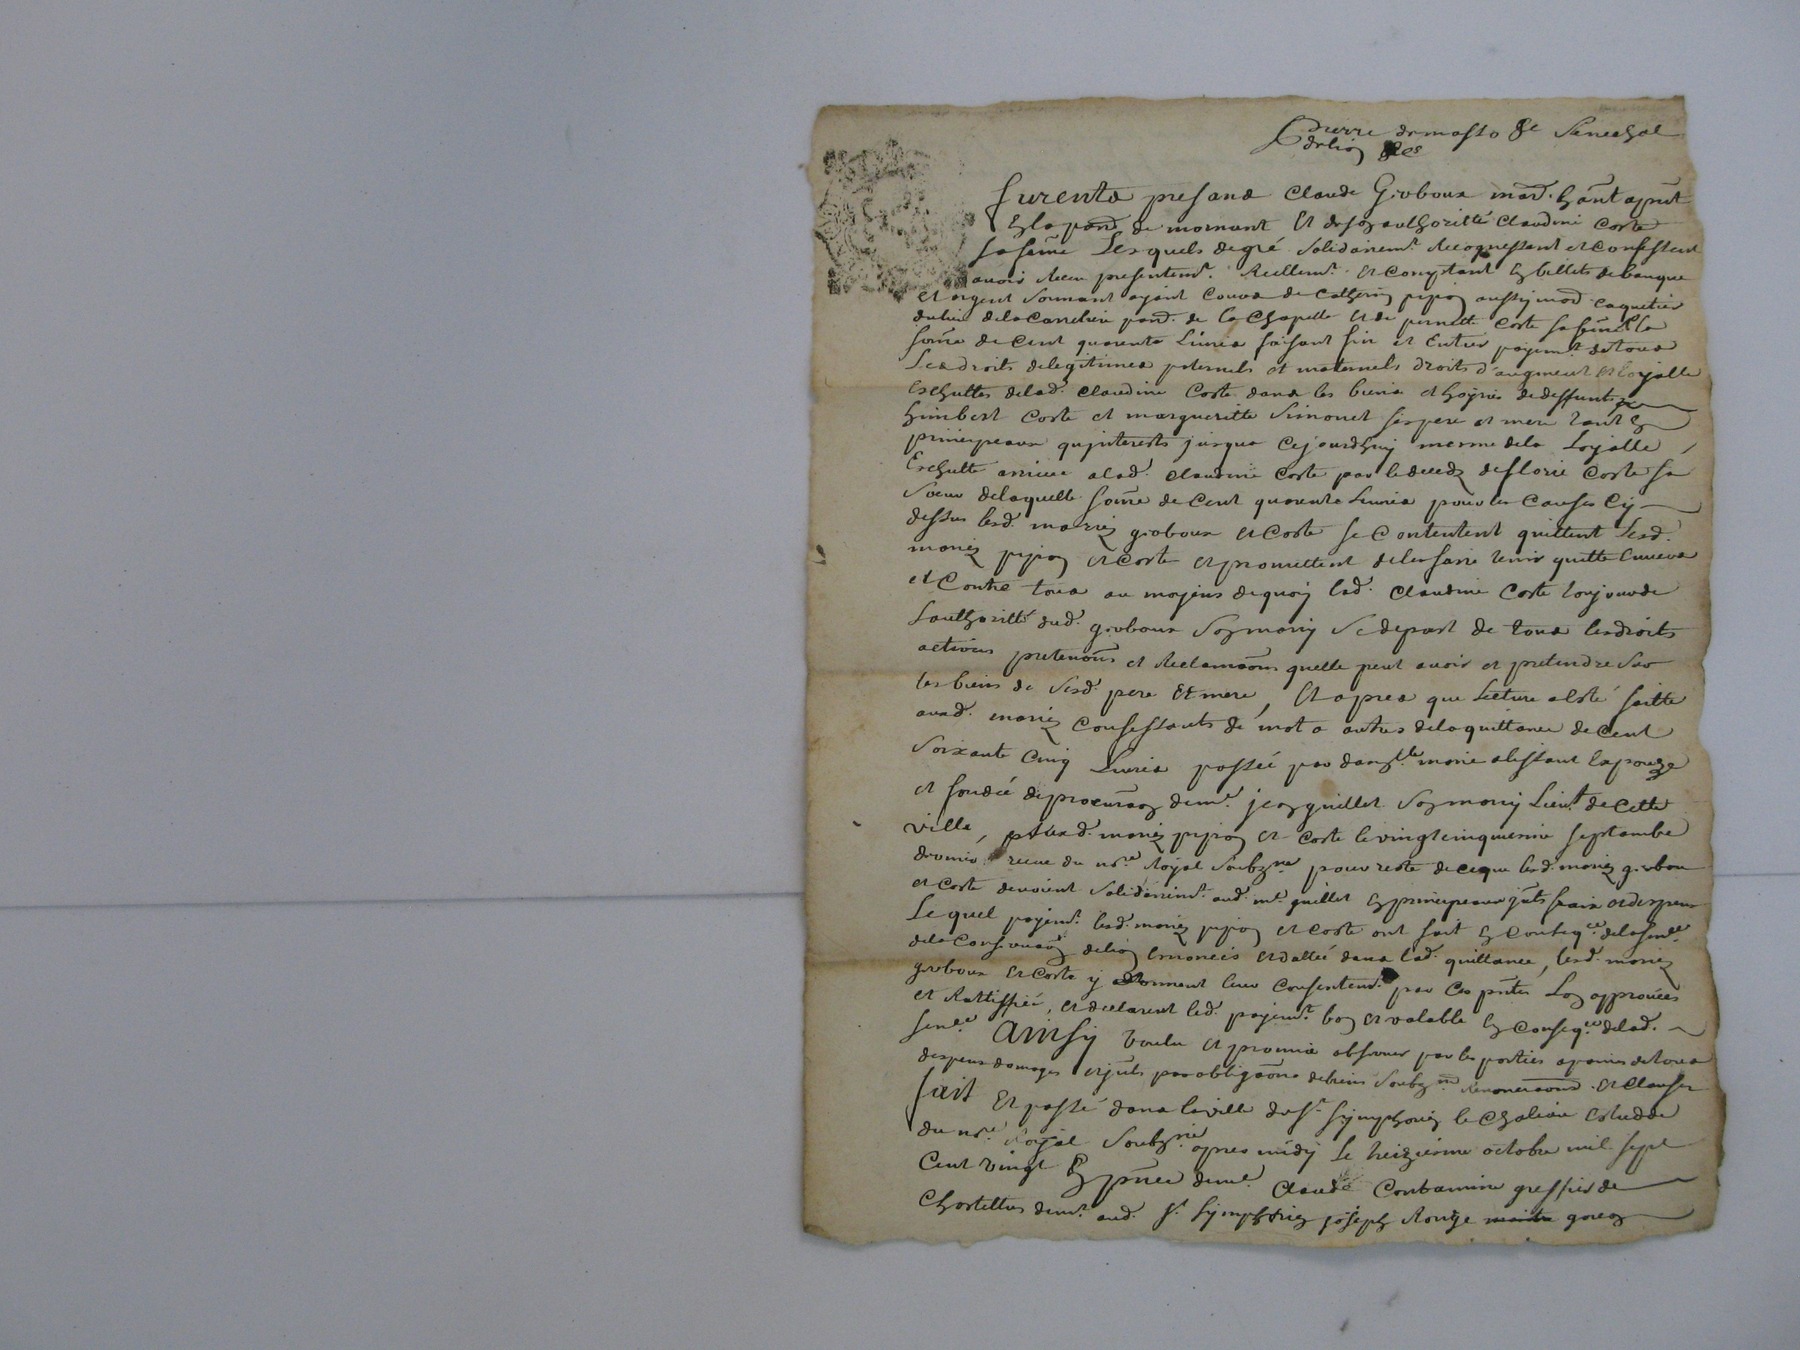 Pierre de masso &c Senechal
de lion &c
furents presans Claude Groboux mard. hant a pnt
en la parr. de mornant Et de son authoritté Claudine Coste
sa fame Lesquels de gré solidairemt. Recognessent et Confessent
avoir Receu presentemt. Reellemt. et Comptant en billets de banque
et argent sonnant ayant Cours de Catherin pipon aussy mard. Coquetier
du lieu de la parr. de la Chapelle et de pernette Coste sa fame la
some de Cent quarente Livres faisant fin et Entier payemt. de tous
Les droits de legitimes paternels et maternels, droits d'augment et loyalle
Eschuttes de lad. Claudine Coste dans les biens et hoyries de deffunts
himbert Coste et margueritte Simonet ses pere et mere tant en
principeaux qu'interests jusques a ce jourdhuy mesme de la Loyalle
Eschutte arrivee a lad. Claudine Coste par le deceds de florie Coste sa
soeur de laquelle some de Cent quarente Livres pour les Causes Cy
dessus lesd. mariez groboux et Coste se Contentent quittent lesd.
mariez pipon et Coste et promettent de les faire tenir quitte Envers
et Contre tous au moyens de quoy lad. Claudine Coste toujours de
Lauthoritté dud. groboux son mary se depart de tous les droits
actions pretentions et Reclamaons quelle peut avoir et pretendre sur
les biens de sesd. pere Et mere, Et apres que Lecture a Esté faitte
ausd. mariez Confessants de mot a autres de la quittance de Cent
soixante Cinq Livres passée par marie alissant Espouze
et fondée de procuraon de me. jean guillet son mary Lieut. de cette
ville, ausd. mariez pipon et Coste le vingt cinquiesme septambre
dernier receue du nre. Royal soubzne. pour reste de ce que lesd. mariez groboux
et Coste devoient solidairemt. aud. me. guillet en principeaux jnts fraix et despens
Lequel payemt. lesd. mariez pipon et Coste ont fait en Conseqce. de la sence.
de la Conservaon de lion Enoncée et dattée dans lad. quittance, lesd. mariez
groboux et Coste y donnent leur Consentemt. par Ces pntes Lon approuées
et Rattiffiée, et declarent led. payemt. bon et valable en Conseqce. de lad.
sence. Ainsy voulu et promis observer par les parties a peines de tous
despens domages et jnts par obligaons de biens soubzons Renonciaons et Clauses
fait Et passé dans la ville de St. Symphorien le Chateau Estude
du nre. Royal soubzne. apres midy le treiziesme octobre mil sept
Cent vingt En pnce de me. Claude Contamine greffier de
Chastellus demt. aud. St. Symphorien joseph Ronze garcon